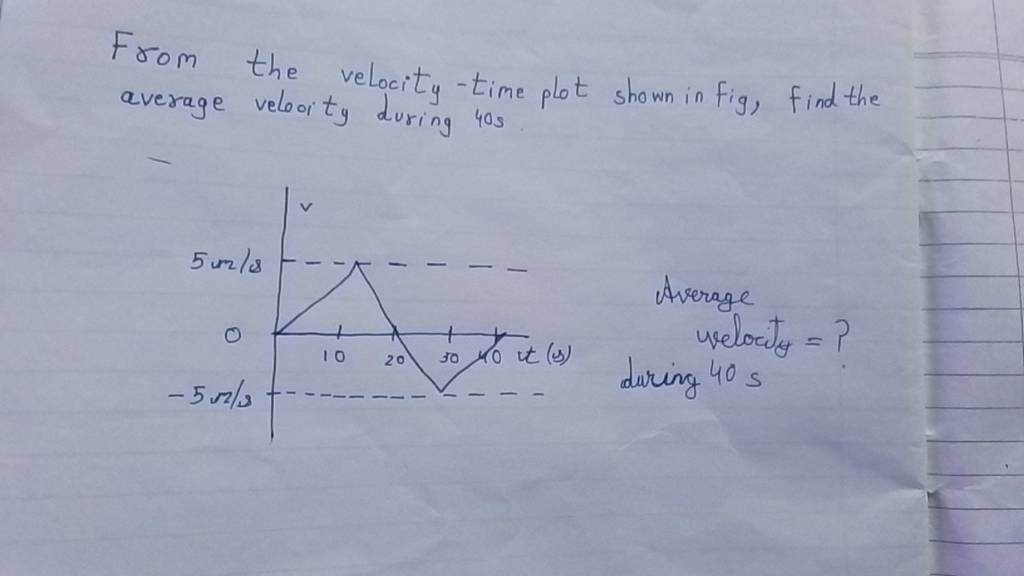 From the velocity-time plot shown in fig, find the
average velocity during 40s
v
5 m/s
0
10 20 30 40 t (s)
-5 m/s
Average
velocity = ?
during 40 s